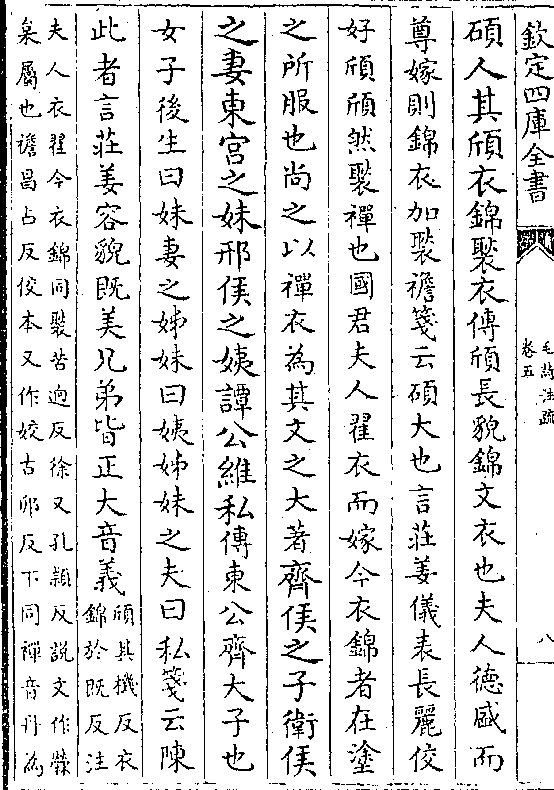 欽定四庫全書
毛詩注疏
卷五
八
碩人其頎衣錦褧衣傳頎長貌錦文衣也夫人德盛而
尊嫁則錦衣加褧襜箋云碩大也言莊姜儀表長麗佼
好頎頎然褧襌也國君夫人翟衣而嫁今衣錦者在塗
之所服也尚之以襌衣為其文之大著齊侯之子衛侯
之妻東宮之妹邢侯之姨譚公維私傳東公齊大子也
女子後生曰妹妻之姊妹曰姨姊妹之夫曰私箋云陳
此者言莊姜容貌既美兄弟皆正大音義
頎其機反衣
錦於既反注
夫人衣翟今衣錦同褧苦迥反徐又孔潁反說文作檾
枲屬也襜昌占反佼本又作姣古卯反下同襌音丹為